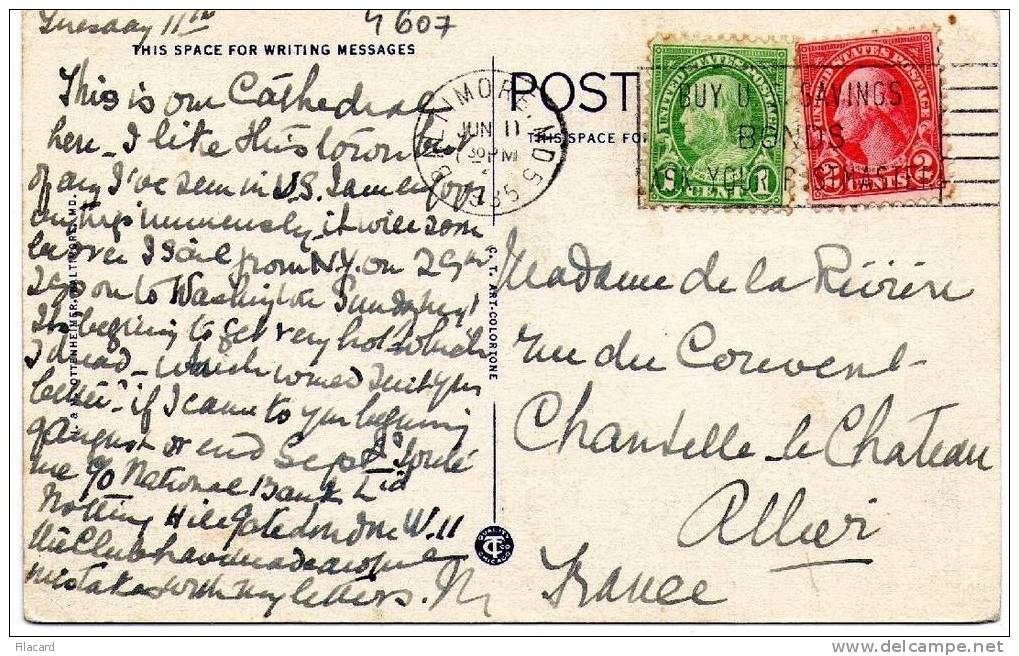 Tuesday 11th
4607
THIS SPACE FOR WRITING MESSAGES
This is our Cathedral
here - I like this town best
of any I've seen in U.S. I am enjoy
immensely - it will soon
be over I sail from N.Y. on 29th
I go on to Washington Sunday next
Its begining to get very hot which
I dread - which would suit you
better - if I came to you begining
of August or end Sept.
me c/o National Bank Ltd
Notting Hill Gate London W. 11
the Club have made
mistakes with my letters.
& OTTENHEIMER, BALTIMORE, MD.
C. T. ART-COLORTONE
QUALITY
CT CO
CHICAGO
POST
THIS SPACE FO
BALTIMORE, MD. 5
JUN 11
30 PM
1935
BUY U SAVINGS
BONDS
ASK YOUR POSTMASTER
UNITED STATES POSTAGE
1 CENT 1
UNITED STATES POSTAGE
2 CENTS 2
Madame de la Rivière
rue du Couvent
Chantelle le Chateau
Allier
France
Filacard
delcampe.net